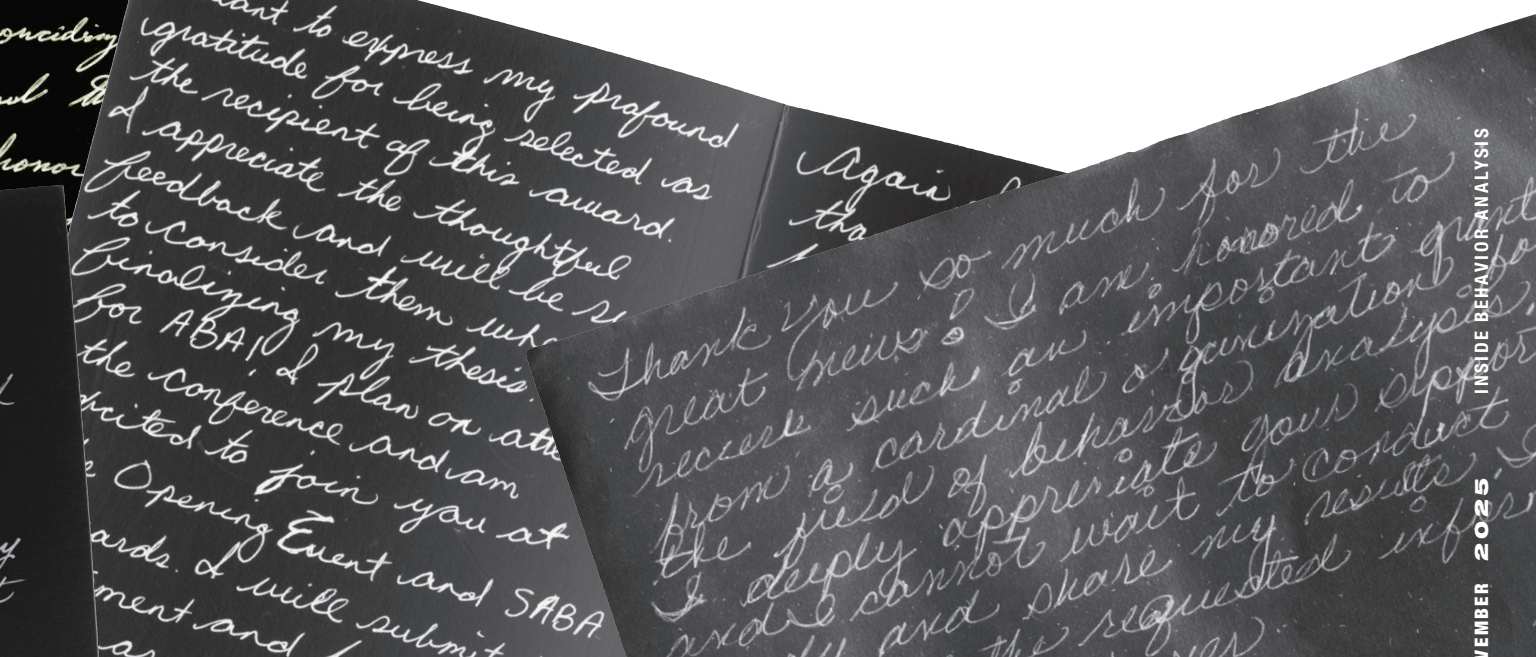 oncidin
and
honor
want to express my profound
gratitude for being selected as
the recipient of this award.
I appreciate the thoughtful
feedback and will be s
to consider them whe
finalizing my thesis.
for ABA! I plan on atte
the conference and am
xcited to join you at
Opening Event and SABA
ards. I will submit
ment and
as
Again
tha
Thank you so much for the
great news! I am honored to
receive such an important grant
from a cardinal organization for
the field of behavior analysis.
I deeply appreciate your suppor
and I cannot wait to conduct
and share my results. I
the requested infor
INSIDE BEHAVIOR ANALYSIS
VEMBER 2025